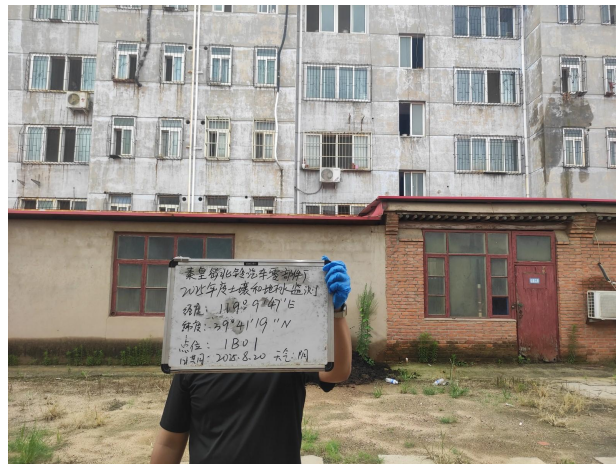 秦皇岛北龙汽车零部件厂
2025年度土壤和地下水监测
经度: 119°9′47″E
纬度: 39°41′19″N
点位: 1B01
日期: 2025.8.20 天气: 阴